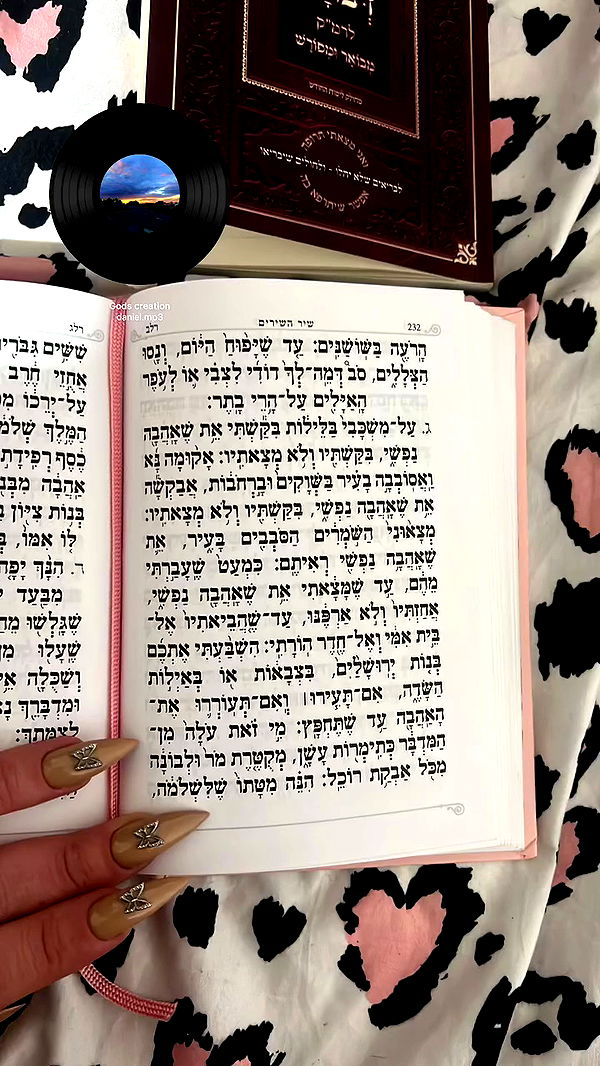 לרמ"ק
מבואר ומפורש
ואני מצאתי תרופה
לבריאים שלא יחלו - ולחולים שיבריאו
Gods creation
daniel.mp3
232 שיר השירים רלב
הָרֹעֶה בַּשּׁוֹשַׁנִּים: עַד שֶׁיָּפוּחַ הַיּוֹם, וְנָסוּ
הַצְּלָלִים, סֹב דְּמֵה־לְךָ דוֹדִי לִצְבִי אוֹ לְעֹפֶר
הָאַיָּלִים עַל־הָרֵי בָתֶר:
ג. עַל־מִשְׁכָּבִי בַּלֵּילוֹת בִּקַּשְׁתִּי אֵת שֶׁאָהֲבָה
נַפְשִׁי, בִּקַּשְׁתִּיו וְלֹא מְצָאתִיו: אָקוּמָה נָּא
וַאֲסוֹבְבָה בָעִיר בַּשְּׁוָקִים וּבָרְחֹבוֹת, אֲבַקְשָׁה
אֵת שֶׁאָהֲבָה נַפְשִׁי, בִּקַּשְׁתִּיו וְלֹא מְצָאתִיו:
מְצָאוּנִי הַשֹּׁמְרִים הַסֹּבְבִים בָּעִיר, אֵת
שֶׁאָהֲבָה נַפְשִׁי רְאִיתֶם: כִּמְעַט שֶׁעָבַרְתִּי
מֵהֶם, עַד שֶׁמָּצָאתִי אֵת שֶׁאָהֲבָה נַפְשִׁי,
אֲחַזְתִּיו וְלֹא אַרְפֶּנּוּ, עַד־שֶׁהֲבֵיאתִיו אֶל־
בֵּית אִמִּי וְאֶל־חֶדֶר הוֹרָתִי: הִשְׁבַּעְתִּי אֶתְכֶם
בְּנוֹת יְרוּשָׁלַ‍ִם, בִּצְבָאוֹת אוֹ בְּאַיְלוֹת
הַשָּׂדֶה, אִם־תָּעִירוּ ׀ וְאִם־תְּעוֹרְרוּ אֶת־
הָאַהֲבָה עַד שֶׁתֶּחְפָּץ: מִי זֹאת עֹלָה מִן־
הַמִּדְבָּר כְּתִימְרוֹת עָשָׁן, מְקֻטֶּרֶת מֹר וּלְבוֹנָה
מִכֹּל אַבְקַת רוֹכֵל: הִנֵּה מִטָּתוֹ שֶׁלִּשְׁלֹמֹה,
רלג
שִׁשִּׁים
אֲחֻזֵי חֶרֶב
עַל־יְרֵכוֹ
הַמֶּלֶךְ
כֶסֶף
אַהֲבָה
בְּנוֹת צִיּוֹן
לּוֹ אִמּוֹ,
ד. הִנָּךְ יָפָה
מִבַּעַד
שֶׁגָּלְשׁוּ
שֶׁעָלוּ
וְשַׁכֻּלָה
וּמִדְבָּרֵךְ
לְצַמָּתֵךְ: